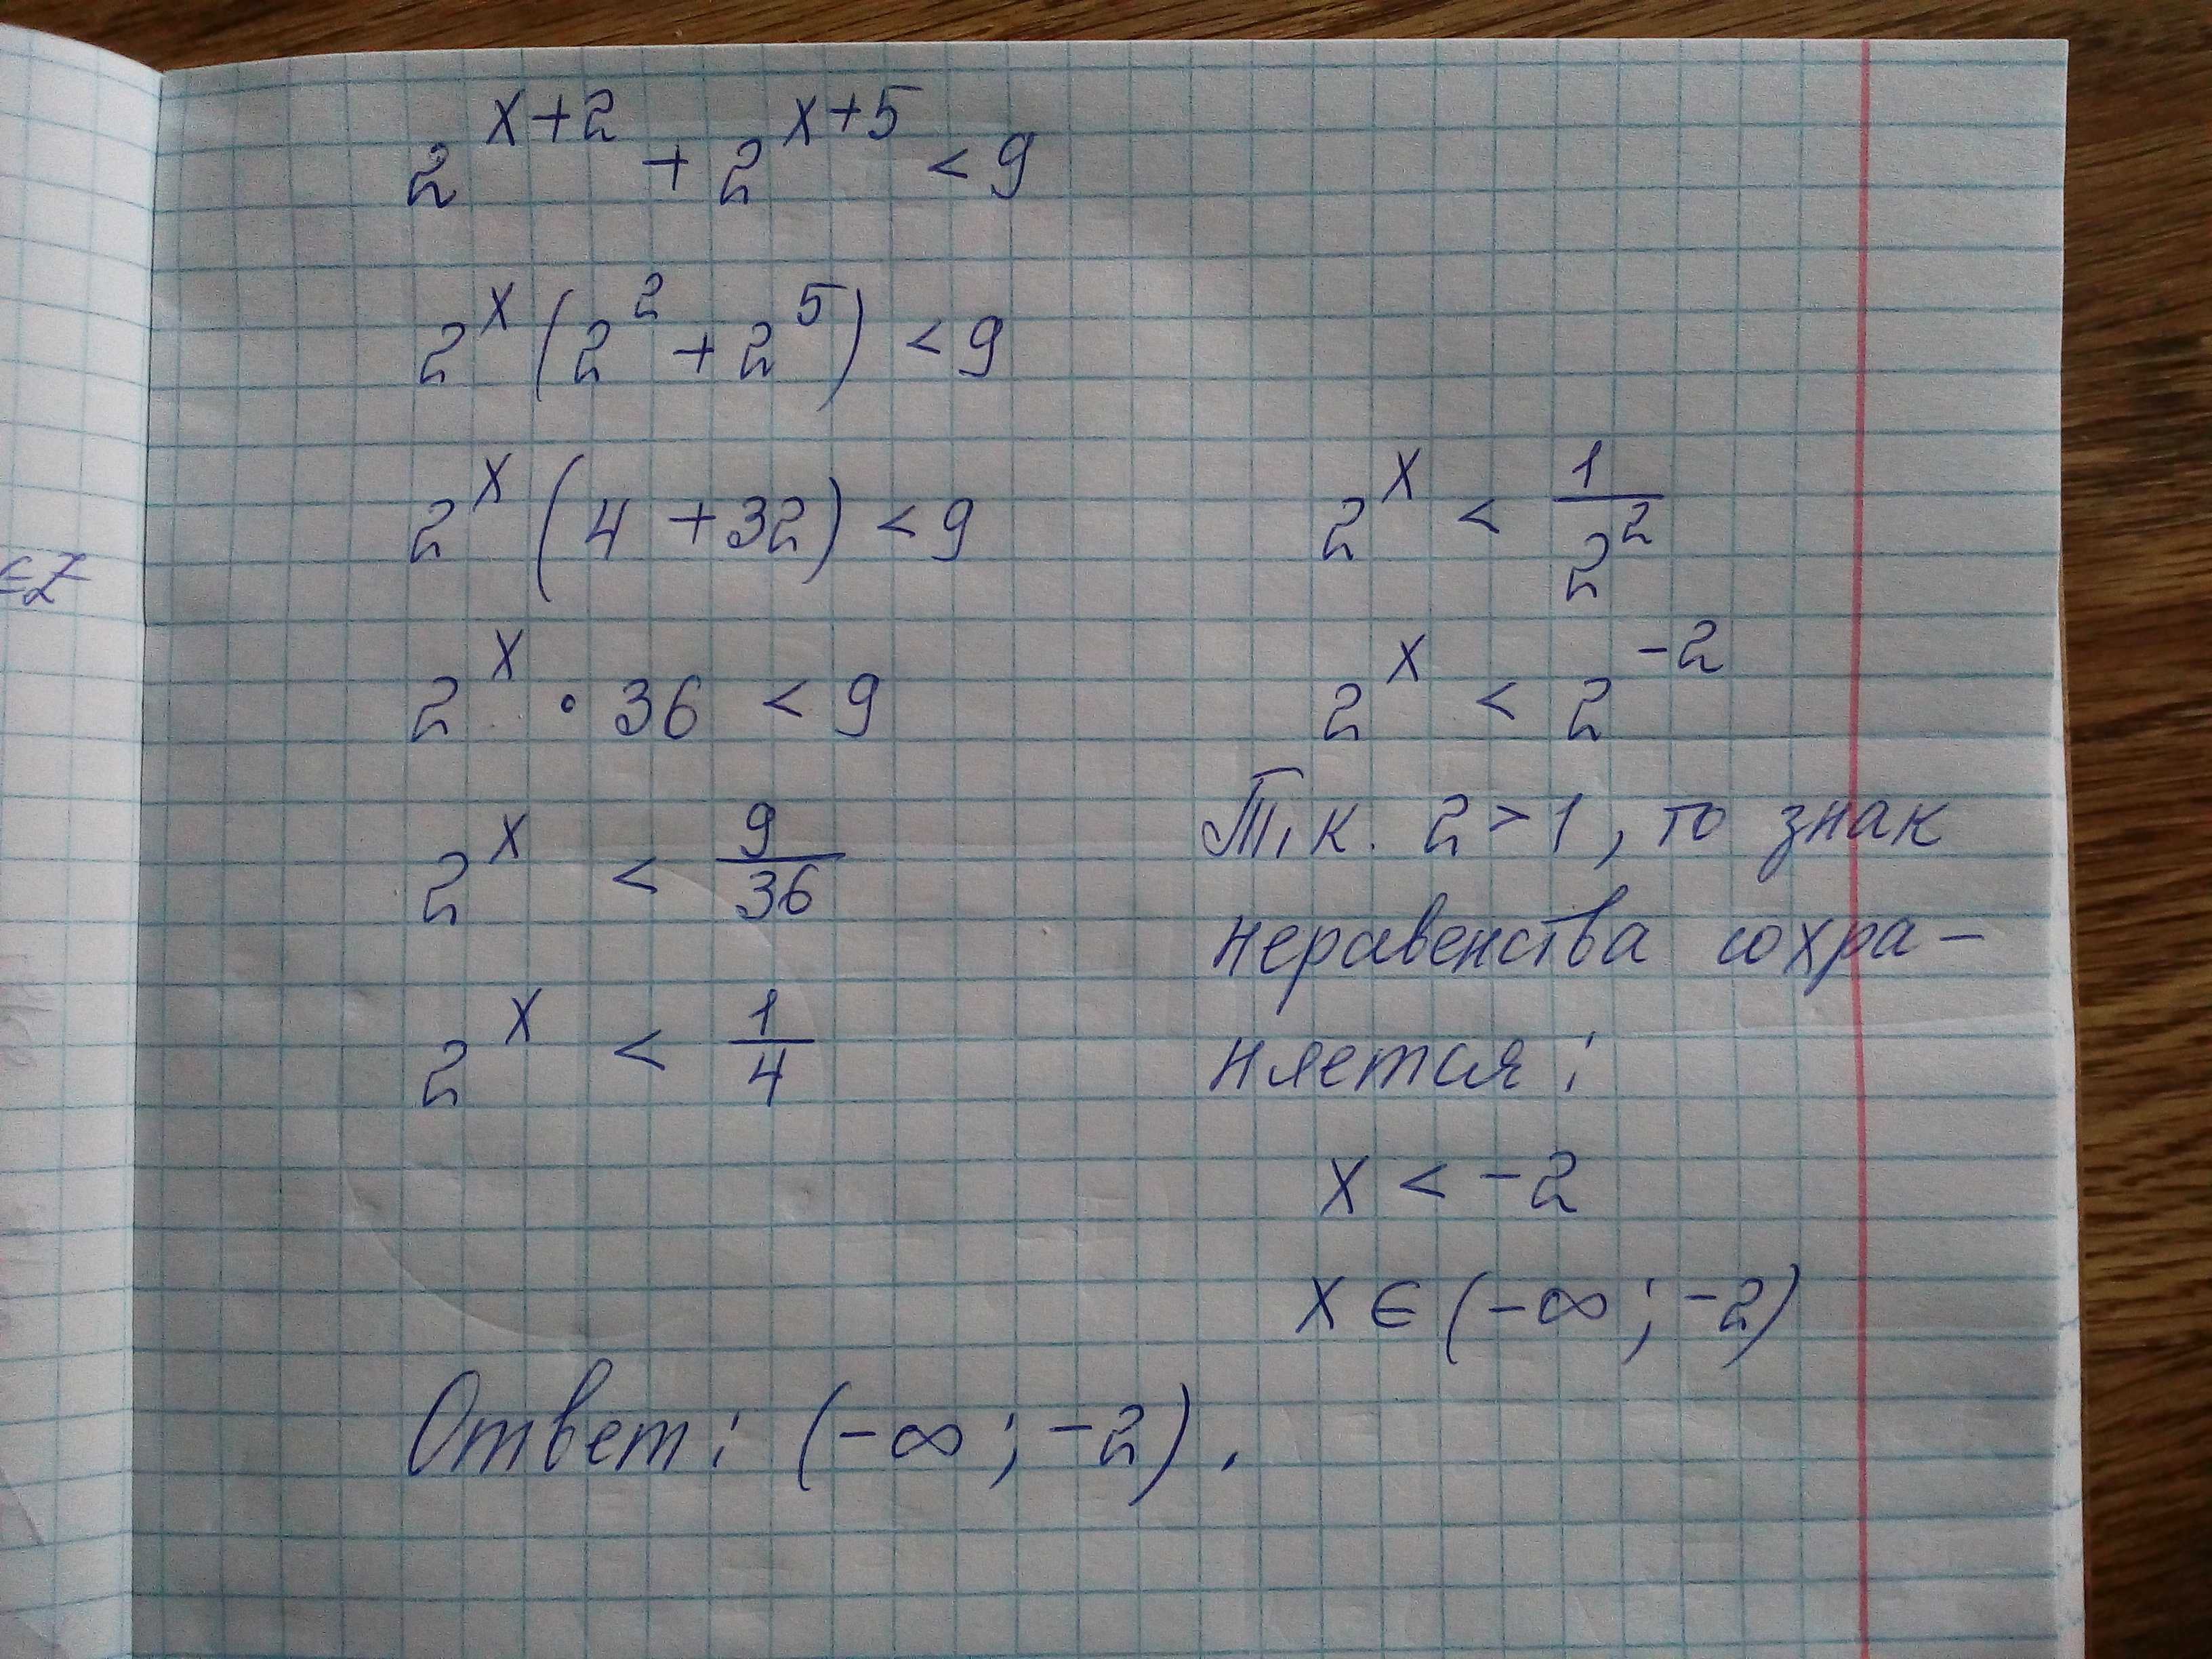 2^(x+2) + 2^(x+5) < 9
2^x (2^2 + 2^5) < 9
2^x (4 + 32) < 9
2^x · 36 < 9
2^x < 9/36
2^x < 1/4
2^x < 1/2^2
2^x < 2^(-2)
Т.к. 2 > 1, то знак
неравенства сохра-
няется:
x < -2
x ∈ (-∞; -2)
Ответ: (-∞; -2).